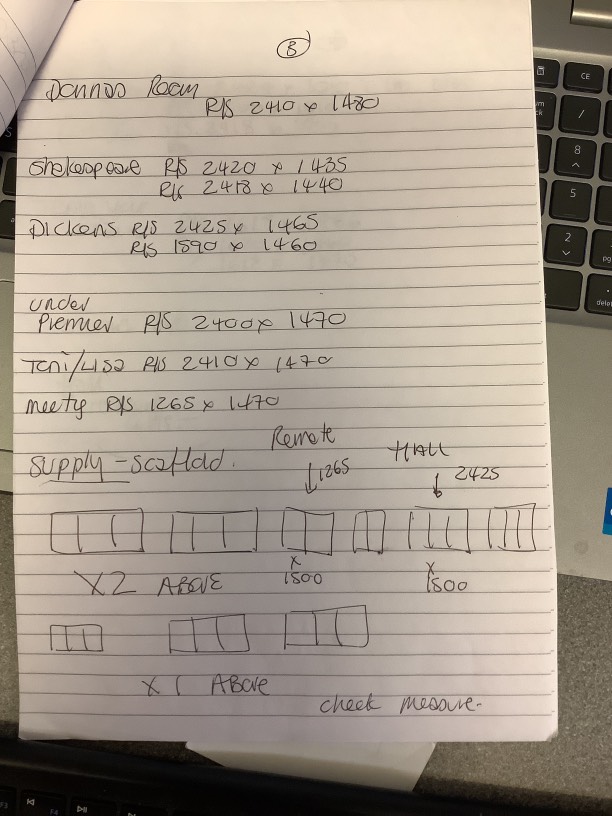 B
Donnas Room
R/S 2410 x 1480
Shakespeare R/S 2420 x 1435
R/S 2418 x 1440
Dickens R/S 2425 x 1465
R/S 1590 x 1460
under
Premier R/S 2400 x 1470
Toni/Lisa R/S 2410 x 1470
meety R/S 1265 x 1470
Remote
HALL
supply - scaffold.
1265
2425
x
1500
x
1500
X2 ABOVE
x 1 Above
check measure.
CE
/
8
5
2
F3
F4